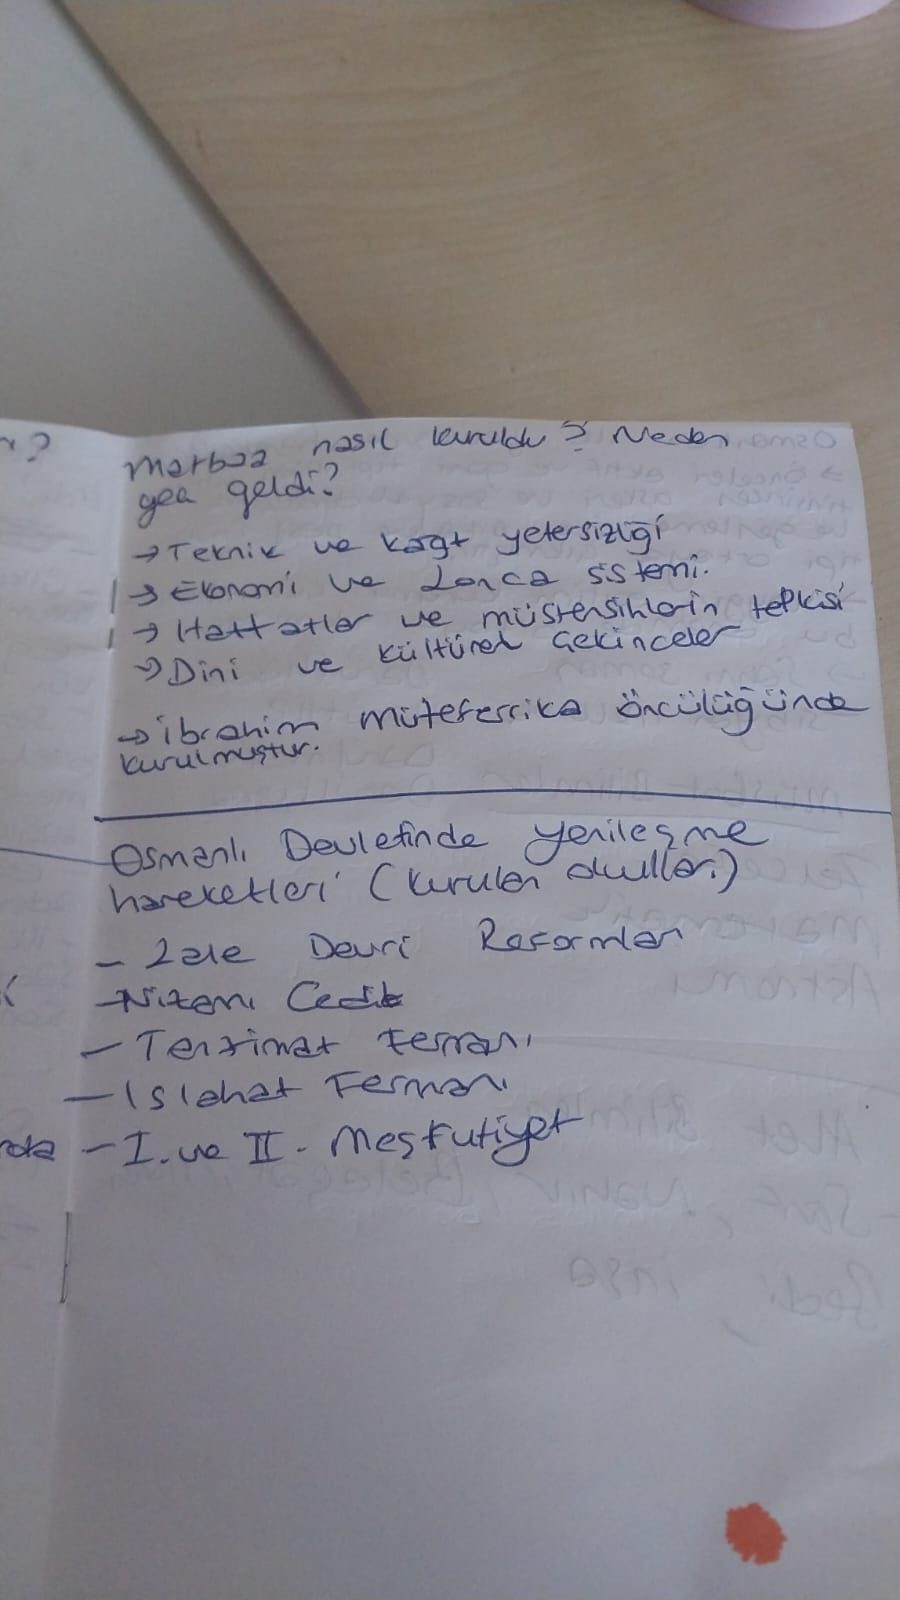 Matbaa nasıl kuruldu? Neden
geç geldi?
→ Teknik ve kağıt yetersizliği
→ Ekonomi ve Lonca sistemi.
→ Hattatlar ve müstensihlerin tepkisi
→ Dini ve Kültürel Çekinceler
→ İbrahim Müteferrika öncülüğünde
kurulmuştur.
Osmanlı Devletinde yenileşme
hareketleri (kurulan okullar)
- Lale Devri Reformları
- Nizamı Cedit
- Tanzimat Fermanı
- Islahat Fermanı
- I. ve II. Meşrutiyet